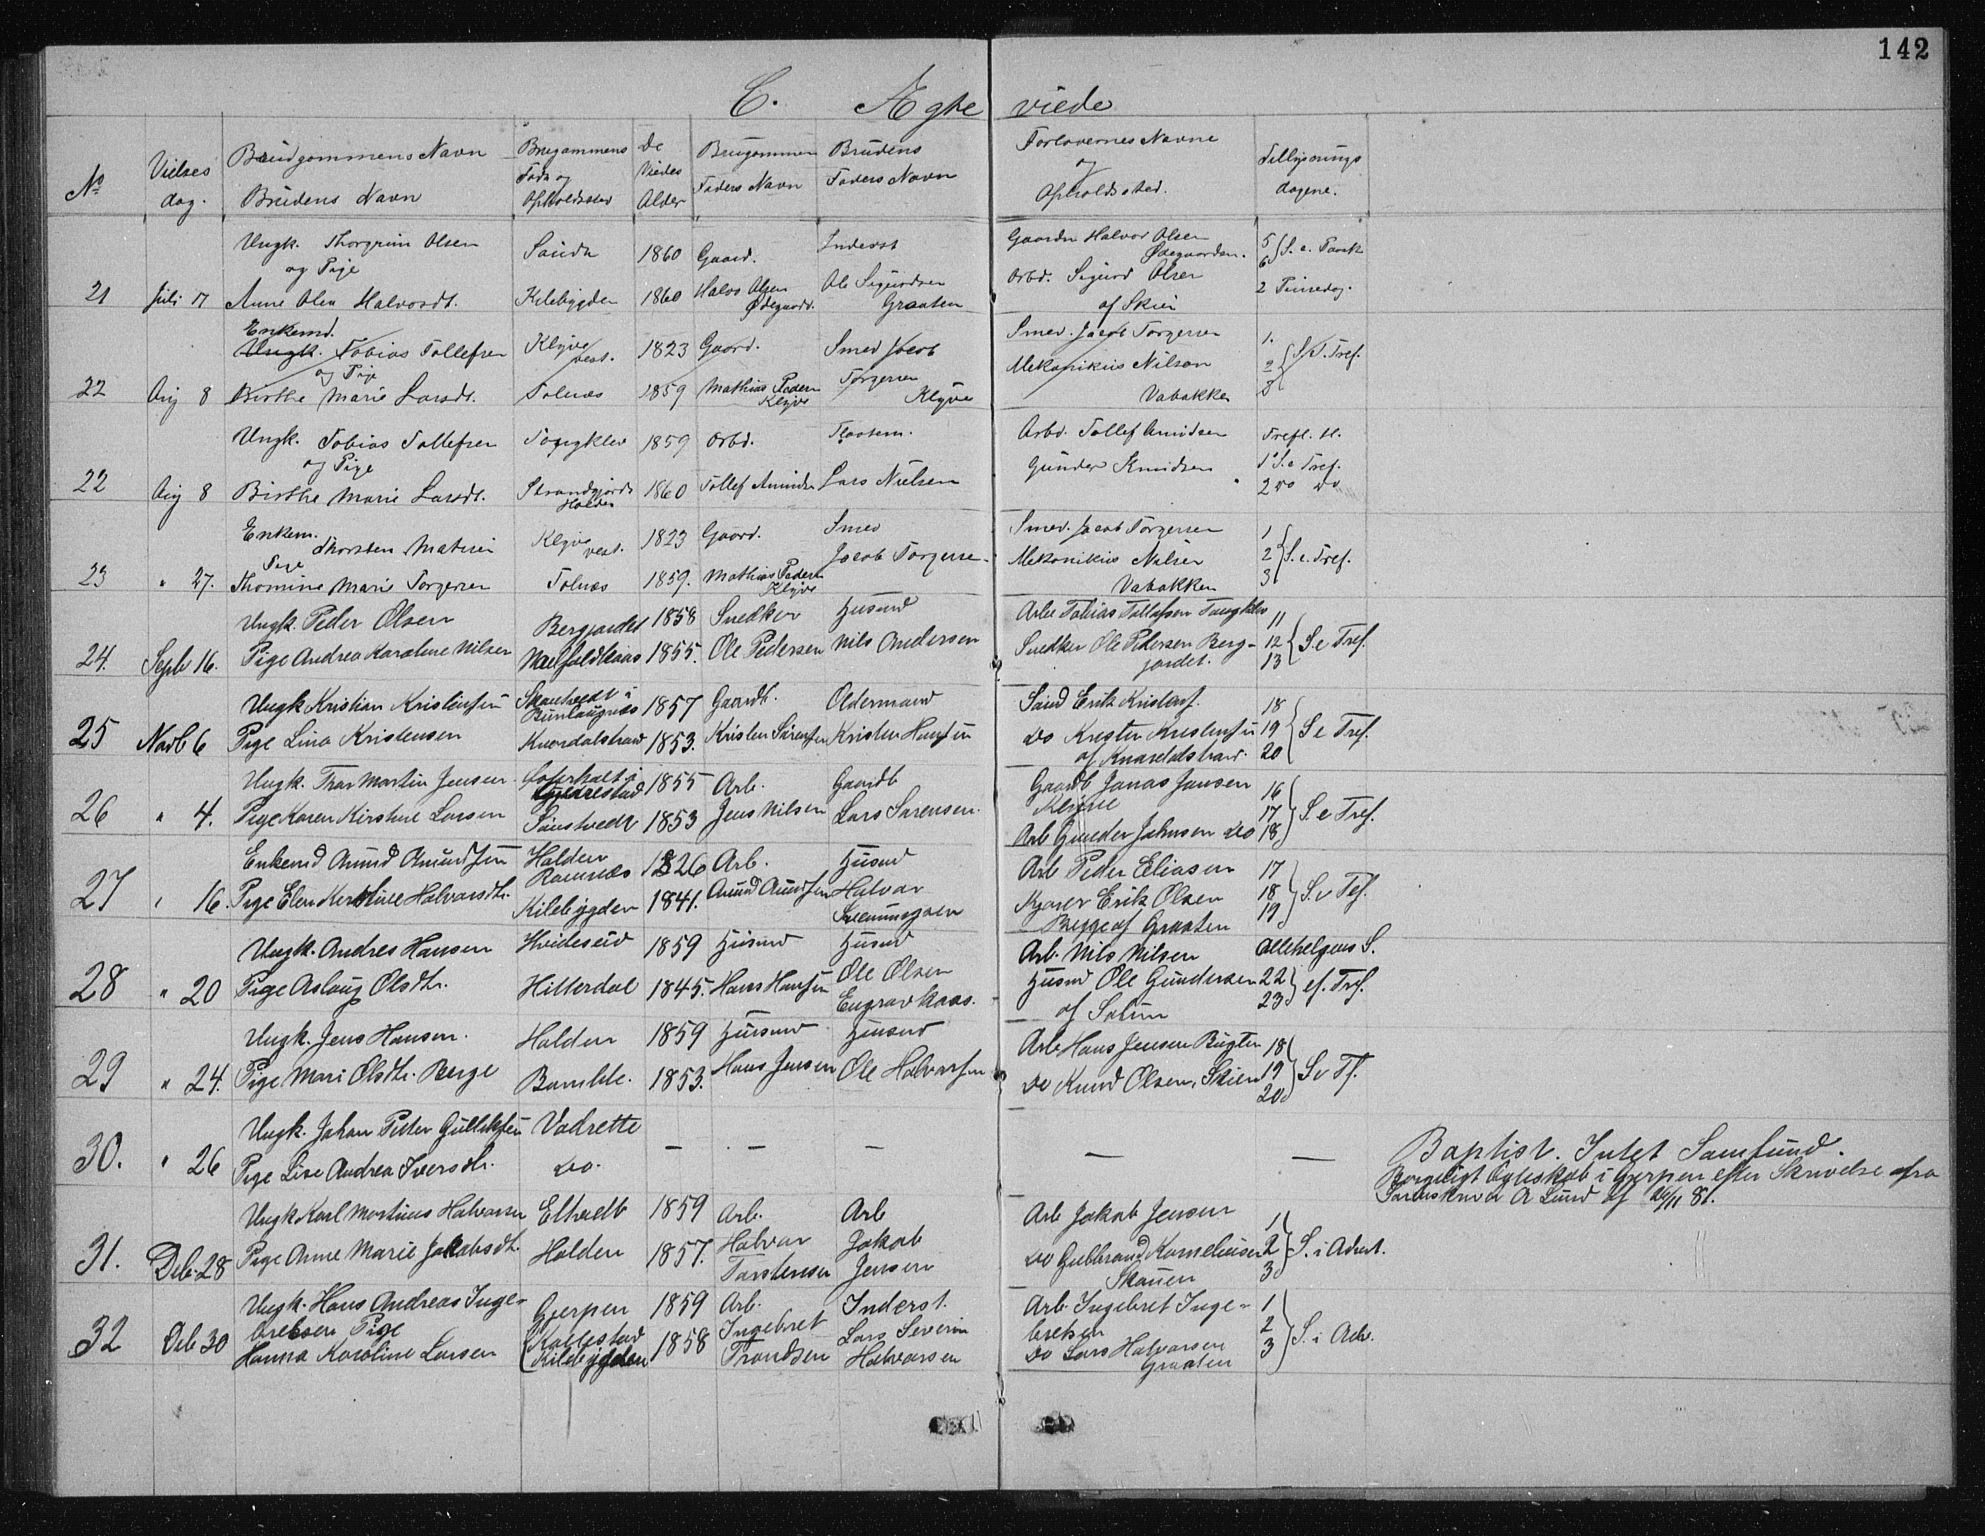 142
C. Ægte viede
No
Vielses dag.
Brudgommens Navn
Brudens Navn
Brugammens Føde og Opholdssted
De Viedes Alder
Brugommen Faders Navn
Brudens Faders Navn
Forlovernes Navne og Opholdsstad.
Tillysnings dagene.
Ungk. Thorgrim Olsen Saude 1860 Gaard. Inderst Gaardbr Halvor Olsen Ødegaarden. 5 6 S. e. Paask
og Pige
21 Juli 17 Anne Olea Halvorsdt. Kilebygden 1860 Halvor Olsen Ødegaard. Ole Sigurdsen Graaten Arbd. Sigurd Olsen af Skien 2 Pinsedag.
Enkemd.
Ungk. Tobias Tollefsen Klyve vest. 1823 Gaard. Smed Jacob Smed. Jacob Torgersen 1.
og Pige
22 Aug 8 Birthe Marie Larsdt. Tolnæs 1859 Mathias Peders Klyve Torgersen Klyve Mekanikus Nilsen Vabakken 2 3 S. e. Tref.
Ungk. Tobias Tollefsen Taugklev 1859 Arbd. Arbd. Tollef Amundsen Trefl. H.
og Pige
22 Aug 8 Birthe Marie Larsdt. Strandgjorde Holden 1860 Tollef Amundsen Lars Nielsen Gunder Knudsen 1 S. e Tref. 2 do do
Enkem. Thorsten Mathisen Klyve vest. 1823 Gaard. Smed Smed. Jacob Torgersen 1
Pige
23 " 27. Thomine Marie Torgersen Tolnæs 1859. Mathias Peders Klyve Jacob Torgerse- Mekanikus Nilsen Vabakken 2 3 S. e. Tref.
Ungk. Peder Olsen Bergjordet 1858 Snedker Husmd Arbe Tobias Tollefsen Taugklev 11
24. Septb 16. Pige Andrea Karoline Nilsen 1855. Ole Pedersen Nils Andersen Snedker Ole Pedersen Bergjordet. 12 13 S. e Tref.
Ungk Kristian Kristensen 1857 Gaardb. Oldermand Erik 18
25 Novb 6 Pige Lina Kristensen 1853. Kristen Sørensen Kristen Hansen do Kresten Kristensen 19 20 S e Tref.
Ungk. Martin Jensen 1855 Arb. Gaardb Gaardb Jonas Jansen Klyve 16
26 " 4. Pige Karen Kirstine Larsen 1853 Jens Nilsen Lars Sørensen. Arb Gunder Johnsen do 17 18 S. e Tref.
Enkemd Amund Amundsen Holden Romnæs 1826 Arb. Husmd Arb Peder Eliasen 17
27 " 16. Pige Elen Kirstine Halvorsdtr. Kilebygden 1841. Amund Amundsen Halvor Erik Olsen Begge af Graaten 18 19 S. e Tref.
Ungk. Andres Hansen Hvideseid 1859 Husmd Husmd Arb. Nils Nilsen Allehelgens S.
28 " 20 Pige Aslaug Olsdtr. Hitterdal 1845. Hans Hansen Ole Olsen Husmd Ole Gundersen af Solum 22 23 ef. Tref.
Ungk. Jens Hansen. Holden 1859 Husmd Husmd Arb Hans Jensen 18
29 " 24. Pige Mari Olsdtr. Berge Bamble. 1853. Hans Jensen Ole Halvorsen do Knud Olsen, Skien 19 20 S e Tf.
Ungk. Johan Petter Gulliksen Vadrette — — — — —
30. " 26 Pige Lise Andrea Iversdtr. do.
Baptist. Intet Samfund.
Borgeligt Ægteskab i Gjerpen efter Skrivelse fra
Sorenskriver A Lund af 26/11 81.
Ungk Karl Martinus Halvorsen 1859 Arb. Arb Arb Jakob Jensen 1
31. Deb. 28 Pige Anne Marie Jakobsdtr. Holden 1857. Halvor Torstensen Jakob Jensen do Gulbrand Korneliusen Skauen 2 3 S. i Advt.
Ungk. Hans Andreas Ingebretsen Gjerpen 1859 Arb. Inderst. Arb. Ingebret Ingebretsen 1
32 Deb 30 Pige Hanna Karoline Larsen Kilebygden 1858 Ingebret Trondsen Lars Severin Halvorsen do Lars Halvorsen Graaten 2 3 S. i Adv.